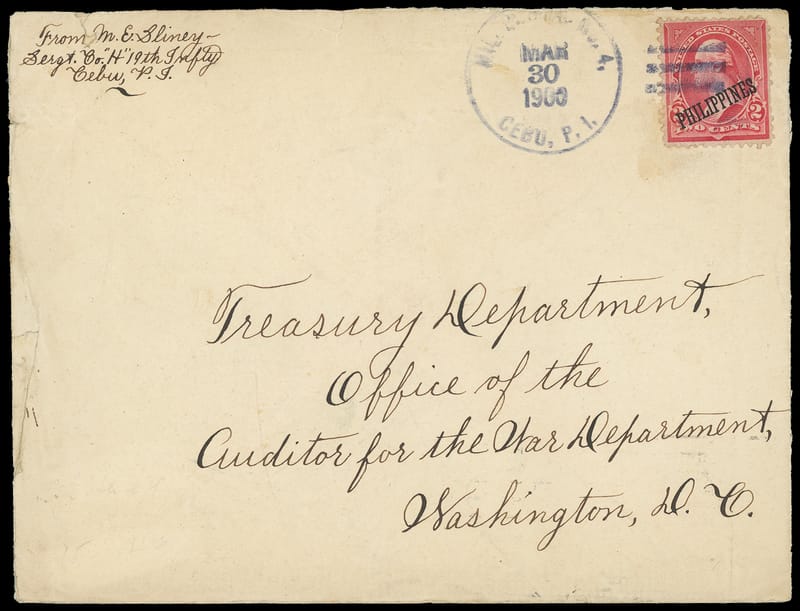 From M. E. Sliney-
Sergt. Co. "H" 19th Infty
Cebu, P. I.
MIL. NO. 4,
MAR
30
1900
CEBU, P. I.
UNITED STATES POSTAGE
PHILIPPINES
2 2
TWO CENTS
Treasury Department,
Office of the
Auditor for the War Department,
Washington, D. C.